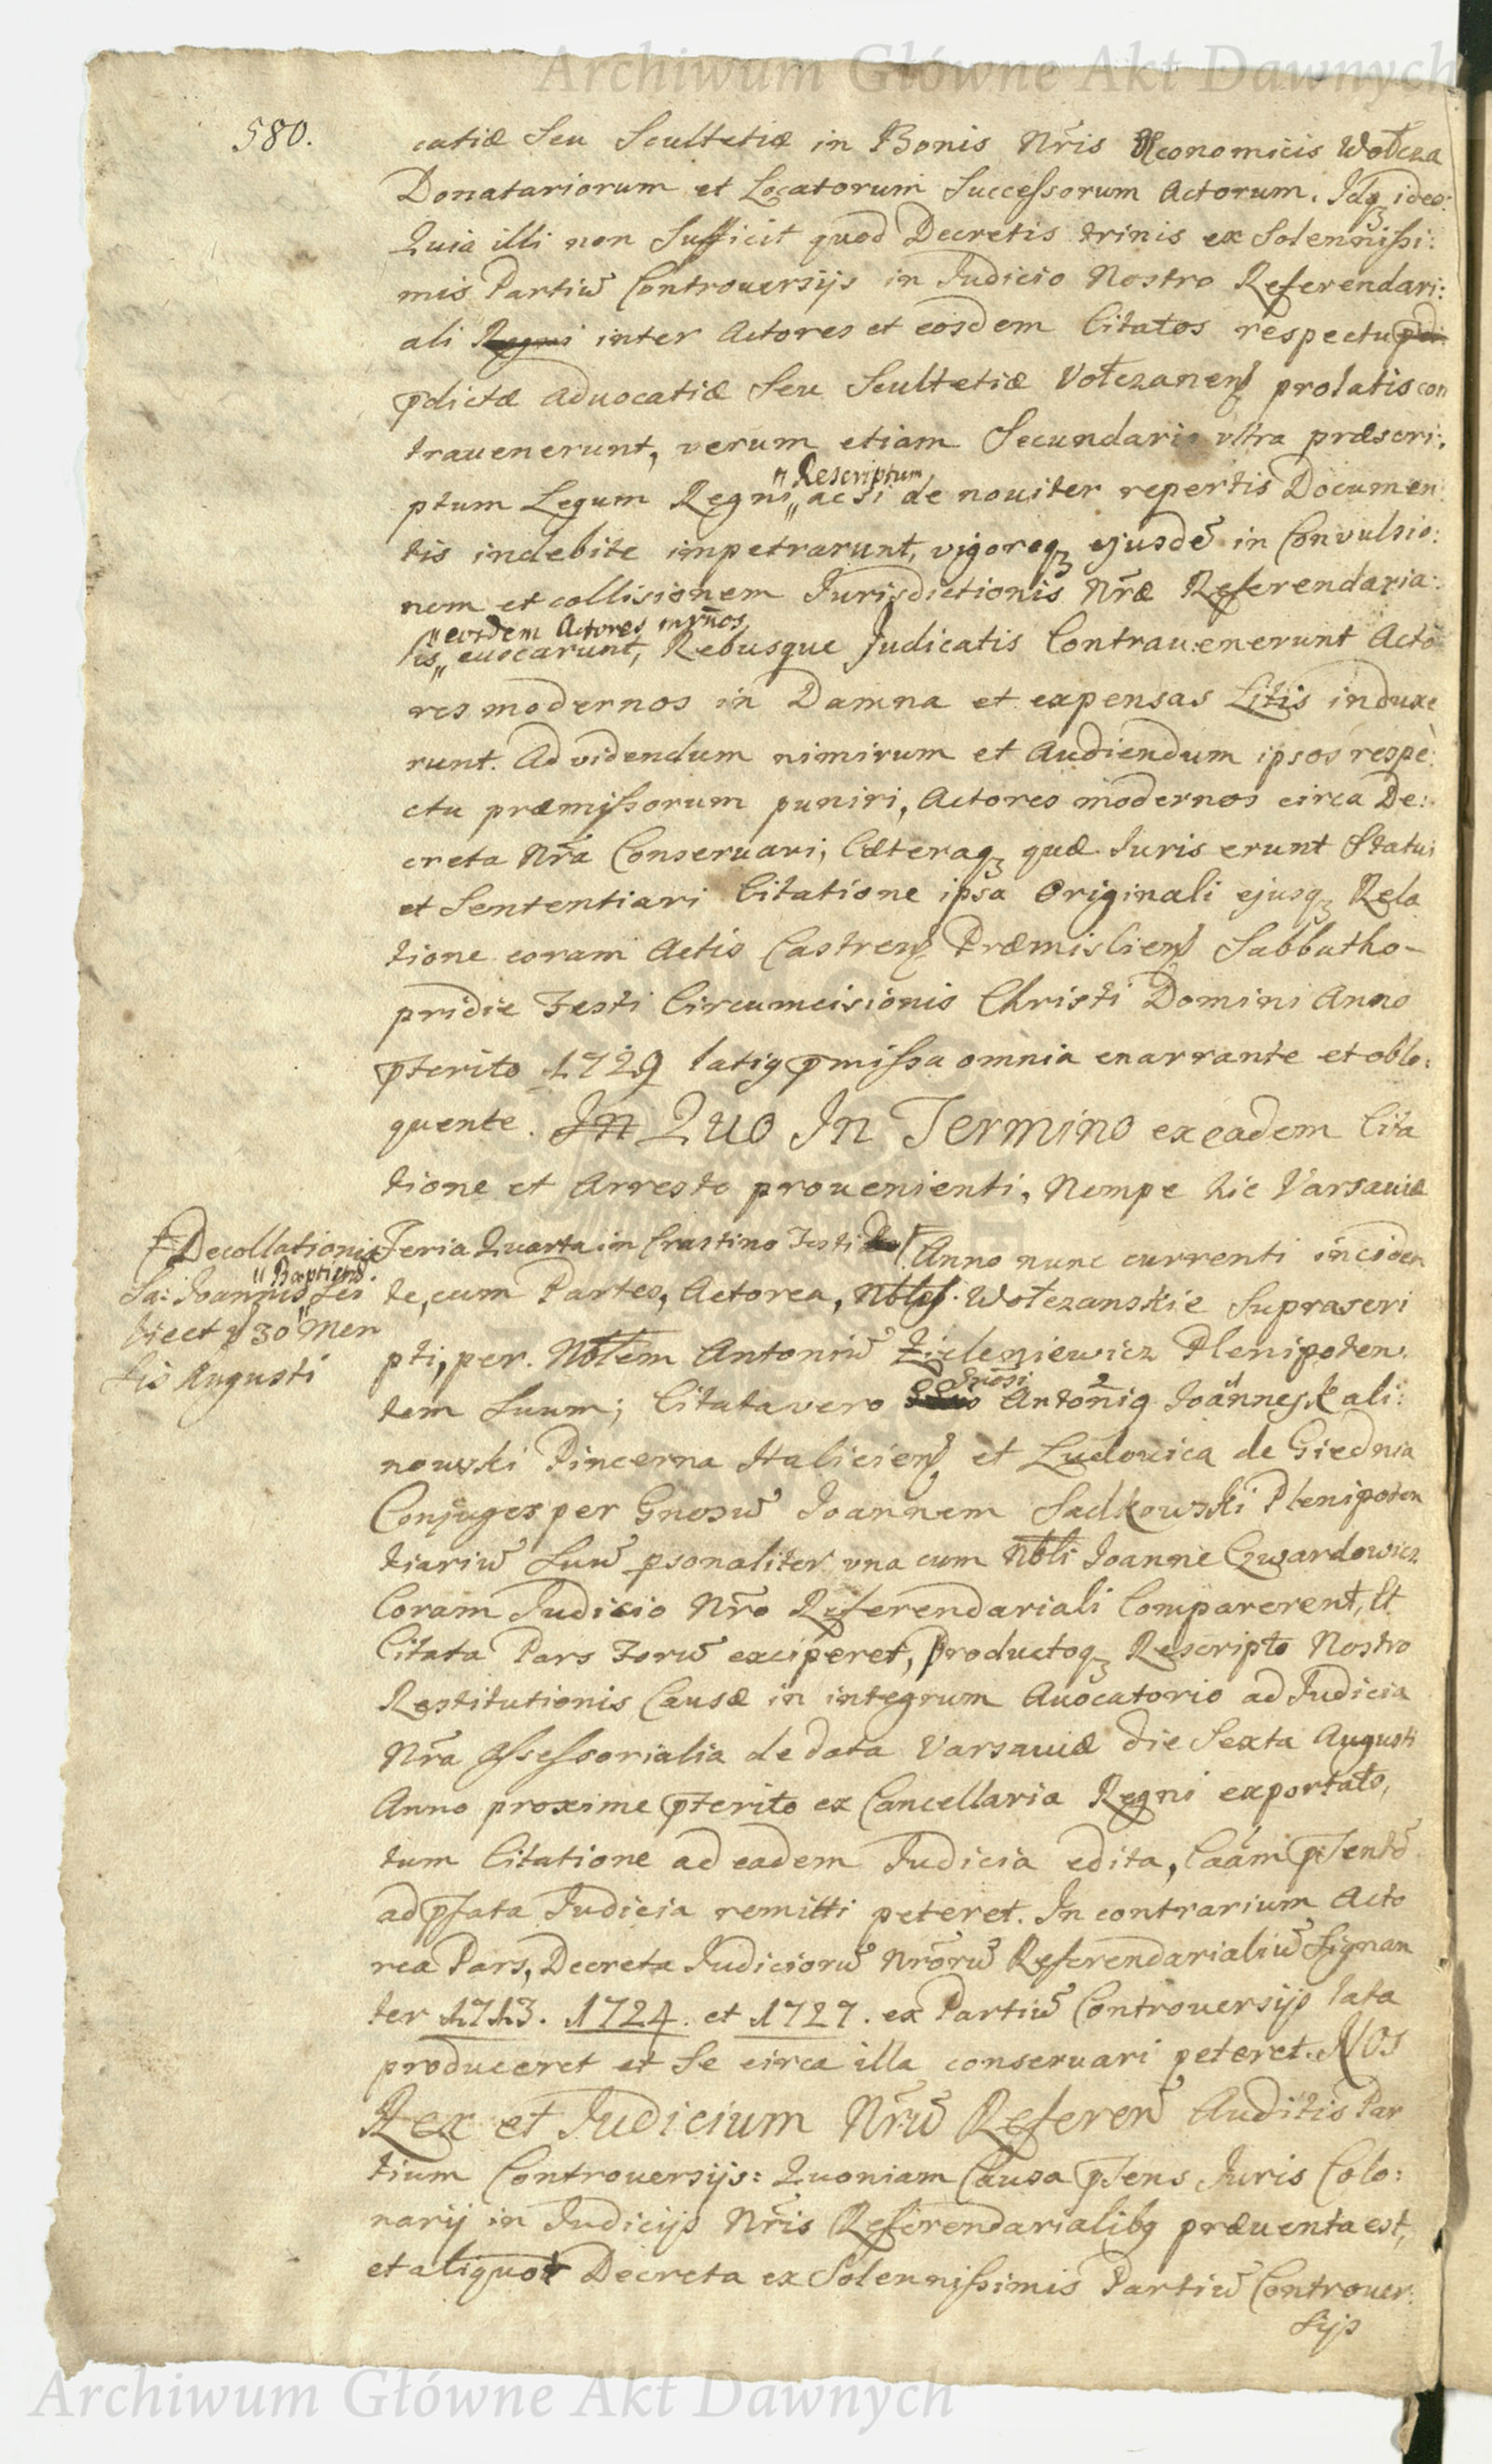 Archiwum Główne Akt Dawnych
580.
catiæ Seu Scultetiæ in Bonis Nr̃is Œconomicis Wołcza
Donatariorum et Locatorum Successorum Actorum. Idq₃ ideo:
Quia illi non Sufficit quod Decretis trinis ex Solennissi:
mis Partiũ Controuersijs in Judicio Nostro Referendari:
ali Regni inter Actores et eosdem Citatos respectu pdi
pdictæ Aduocatiæ Seu Scultetiæ Vołczanens prolatis con
trauenerunt, verum etiam Secundario vltra præscri:
ptum Legum Regni „ Rescriptum „ ac si de nouiter repertis Documen
tis indebite impetrarunt, vigoreq₃ ejusdẽ in Convulsio:
nem et collisionem Jurisdictionis Nr̃æ Referendaria:
lis „ eosdem Actores mr̃nos „ euocarunt, Rebusque Judicatis Contrauenerunt Acto
res modernos in Damna et expensas Litis induxe
runt. Ad videndum nimirum et Audiendum ipsos respe:
ctu præmissorum puniri, Actores modernos circa De:
creta Nr̃a Conseruari, Cæteraq₃ quæ Juris erunt Statui
et Sententiari Citatione ipsa Originali ejusq₃ Rela
tione coram Actis Castrens Præmisliens Sabbatho
pridie Festi Circumcisionis Christi Domini Anno
pterito 1729 latig pmissa omnia enarrante et oblo:
quente. In Quo In Termino ex eadem Cita
tione et Arresto prouenienti, Nempe hic Varsauiæ
Feria Quarta in Crastino Festi Anno nunc currenti inciden
Decollationis
Sa: Joannis „ Baptistæ „ Sei
licet d 30 Men
sis Augusti
te, cum Partes, Actorea, Nbles. Wołczanskie Suprascri
pti, per. Nblem Antoniũ Zieleniewicz Plenipoten
tem Suum; Citata vero Gnosi Antonig Joannes Kali:
nowski Pincerna Haliciens et Ludouica de Giednia
Conjuges per Gnosũ Joannem Sadkowski Plenipoten
tiariũ Suũ psonaliter vna cum Nbli Joanne Gwardowicz
Coram Judicio Nr̃o Referendariali Comparerent, Et
Citata Pars Forũ exciperet, productoq₃ Rescripto Nostro
Restitutionis Causæ in integrum Auocatorio ad Judicia
Nr̃a Assessorialia de data Varsauiæ die Sexta Augusti
Anno proxime pterito ex Cancellaria Regni exportato,
tum Citatione ad eadem Judicia edita, Caam psentẽ
ad pfata Judicia remitti peteret. In contrarium Acto
rea Pars, Decreta Judiciorũ Nr̃orũ Referendarialiũ Signan
ter 1713. 1724. et 1727. ex Partiũ Controuersijs lata
produceret et Se circa illa conseruari peteret. NOS
Rex et Judicium Nr̃ũ Referen̄ Auditis Par
tium Controuersijs: Quoniam Causa psens Juris Colo:
narij in Judicijs Nr̃is Referendarialibg præuenta est,
et aliquot Decreta ex Solennissimis Partiũ Controuer:
sijs
Archiwum Główne Akt Dawnych